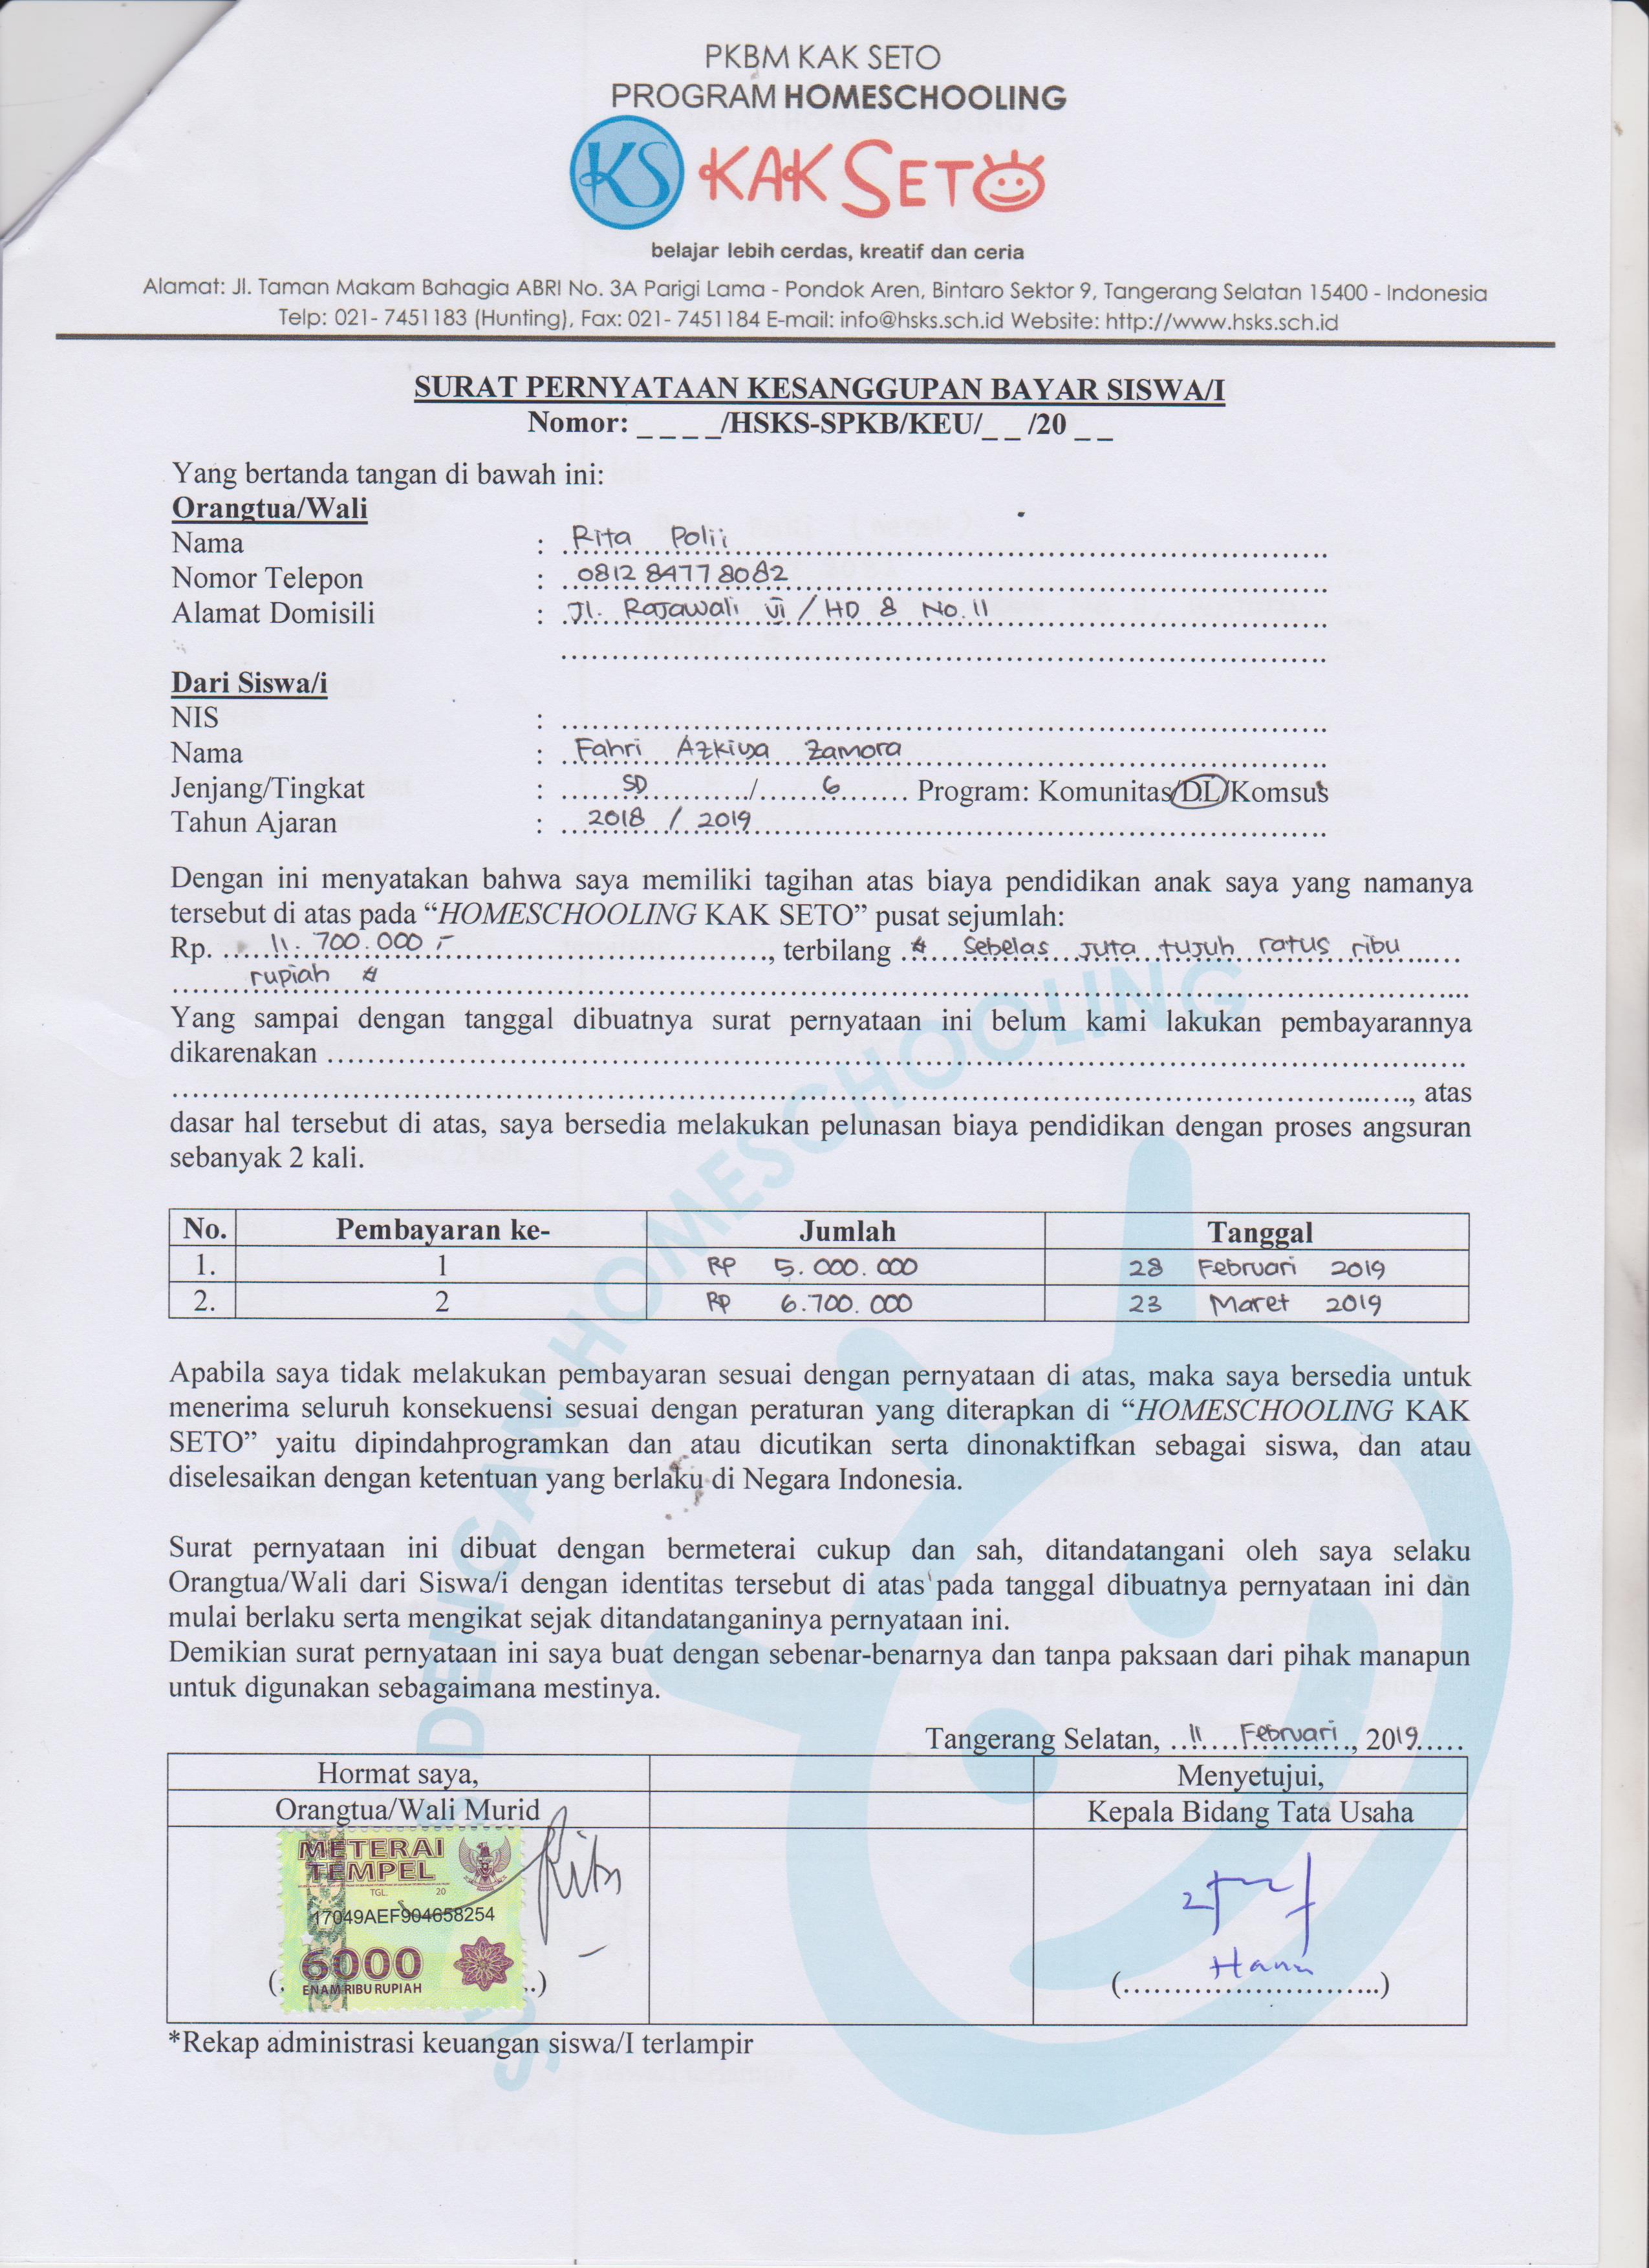 PKBM KAK SETO
PROGRAM HOMESCHOOLING
KS KAK SETO
belajar lebih cerdas, kreatif dan ceria
Alamat: Jl. Taman Makam Bahagia ABRI No. 3A Parigi Lama - Pondok Aren, Bintaro Sektor 9, Tangerang Selatan 15400 - Indonesia
Telp: 021- 7451183 (Hunting), Fax: 021- 7451184 E-mail: info@hsks.sch.id Website: http://www.hsks.sch.id
SURAT PERNYATAAN KESANGGUPAN BAYAR SISWA/I
Nomor: _ _ _ _/HSKS-SPKB/KEU/_ _ /20 _ _
Yang bertanda tangan di bawah ini:
Orangtua/Wali
Nama : Rita Polii
Nomor Telepon : 0812 8477 8082
Alamat Domisili : Jl. Rajawali VI / HD 8 No. 11
Dari Siswa/i
NIS :
Nama : Fahri Azkiya Zamora
Jenjang/Tingkat : SD / 6 Program: Komunitas/DL/Komsus
Tahun Ajaran : 2018 / 2019
Dengan ini menyatakan bahwa saya memiliki tagihan atas biaya pendidikan anak saya yang namanya
tersebut di atas pada “HOMESCHOOLING KAK SETO” pusat sejumlah:
Rp. 11.700.000,-, terbilang # Sebelas juta tujuh ratus ribu
rupiah #
Yang sampai dengan tanggal dibuatnya surat pernyataan ini belum kami lakukan pembayarannya
dikarenakan
, atas
dasar hal tersebut di atas, saya bersedia melakukan pelunasan biaya pendidikan dengan proses angsuran
sebanyak 2 kali.
No. Pembayaran ke- Jumlah Tanggal
1. 1 Rp 5.000.000 28 Februari 2019
2. 2 Rp 6.700.000 23 Maret 2019
Apabila saya tidak melakukan pembayaran sesuai dengan pernyataan di atas, maka saya bersedia untuk
menerima seluruh konsekuensi sesuai dengan peraturan yang diterapkan di “HOMESCHOOLING KAK
SETO” yaitu dipindahprogramkan dan atau dicutikan serta dinonaktifkan sebagai siswa, dan atau
diselesaikan dengan ketentuan yang berlaku di Negara Indonesia.
Surat pernyataan ini dibuat dengan bermeterai cukup dan sah, ditandatangani oleh saya selaku
Orangtua/Wali dari Siswa/i dengan identitas tersebut di atas pada tanggal dibuatnya pernyataan ini dan
mulai berlaku serta mengikat sejak ditandatanganinya pernyataan ini.
Demikian surat pernyataan ini saya buat dengan sebenar-benarnya dan tanpa paksaan dari pihak manapun
untuk digunakan sebagaimana mestinya.
Tangerang Selatan, 11 Februari, 2019
Hormat saya, Menyetujui,
Orangtua/Wali Murid Kepala Bidang Tata Usaha
METERAI
TEMPEL
TGL. 20
17049AEF904658254
6000
ENAM RIBU RUPIAH
Rita
Hani
*Rekap administrasi keuangan siswa/I terlampir
DENGAN HOMESCHOOLING